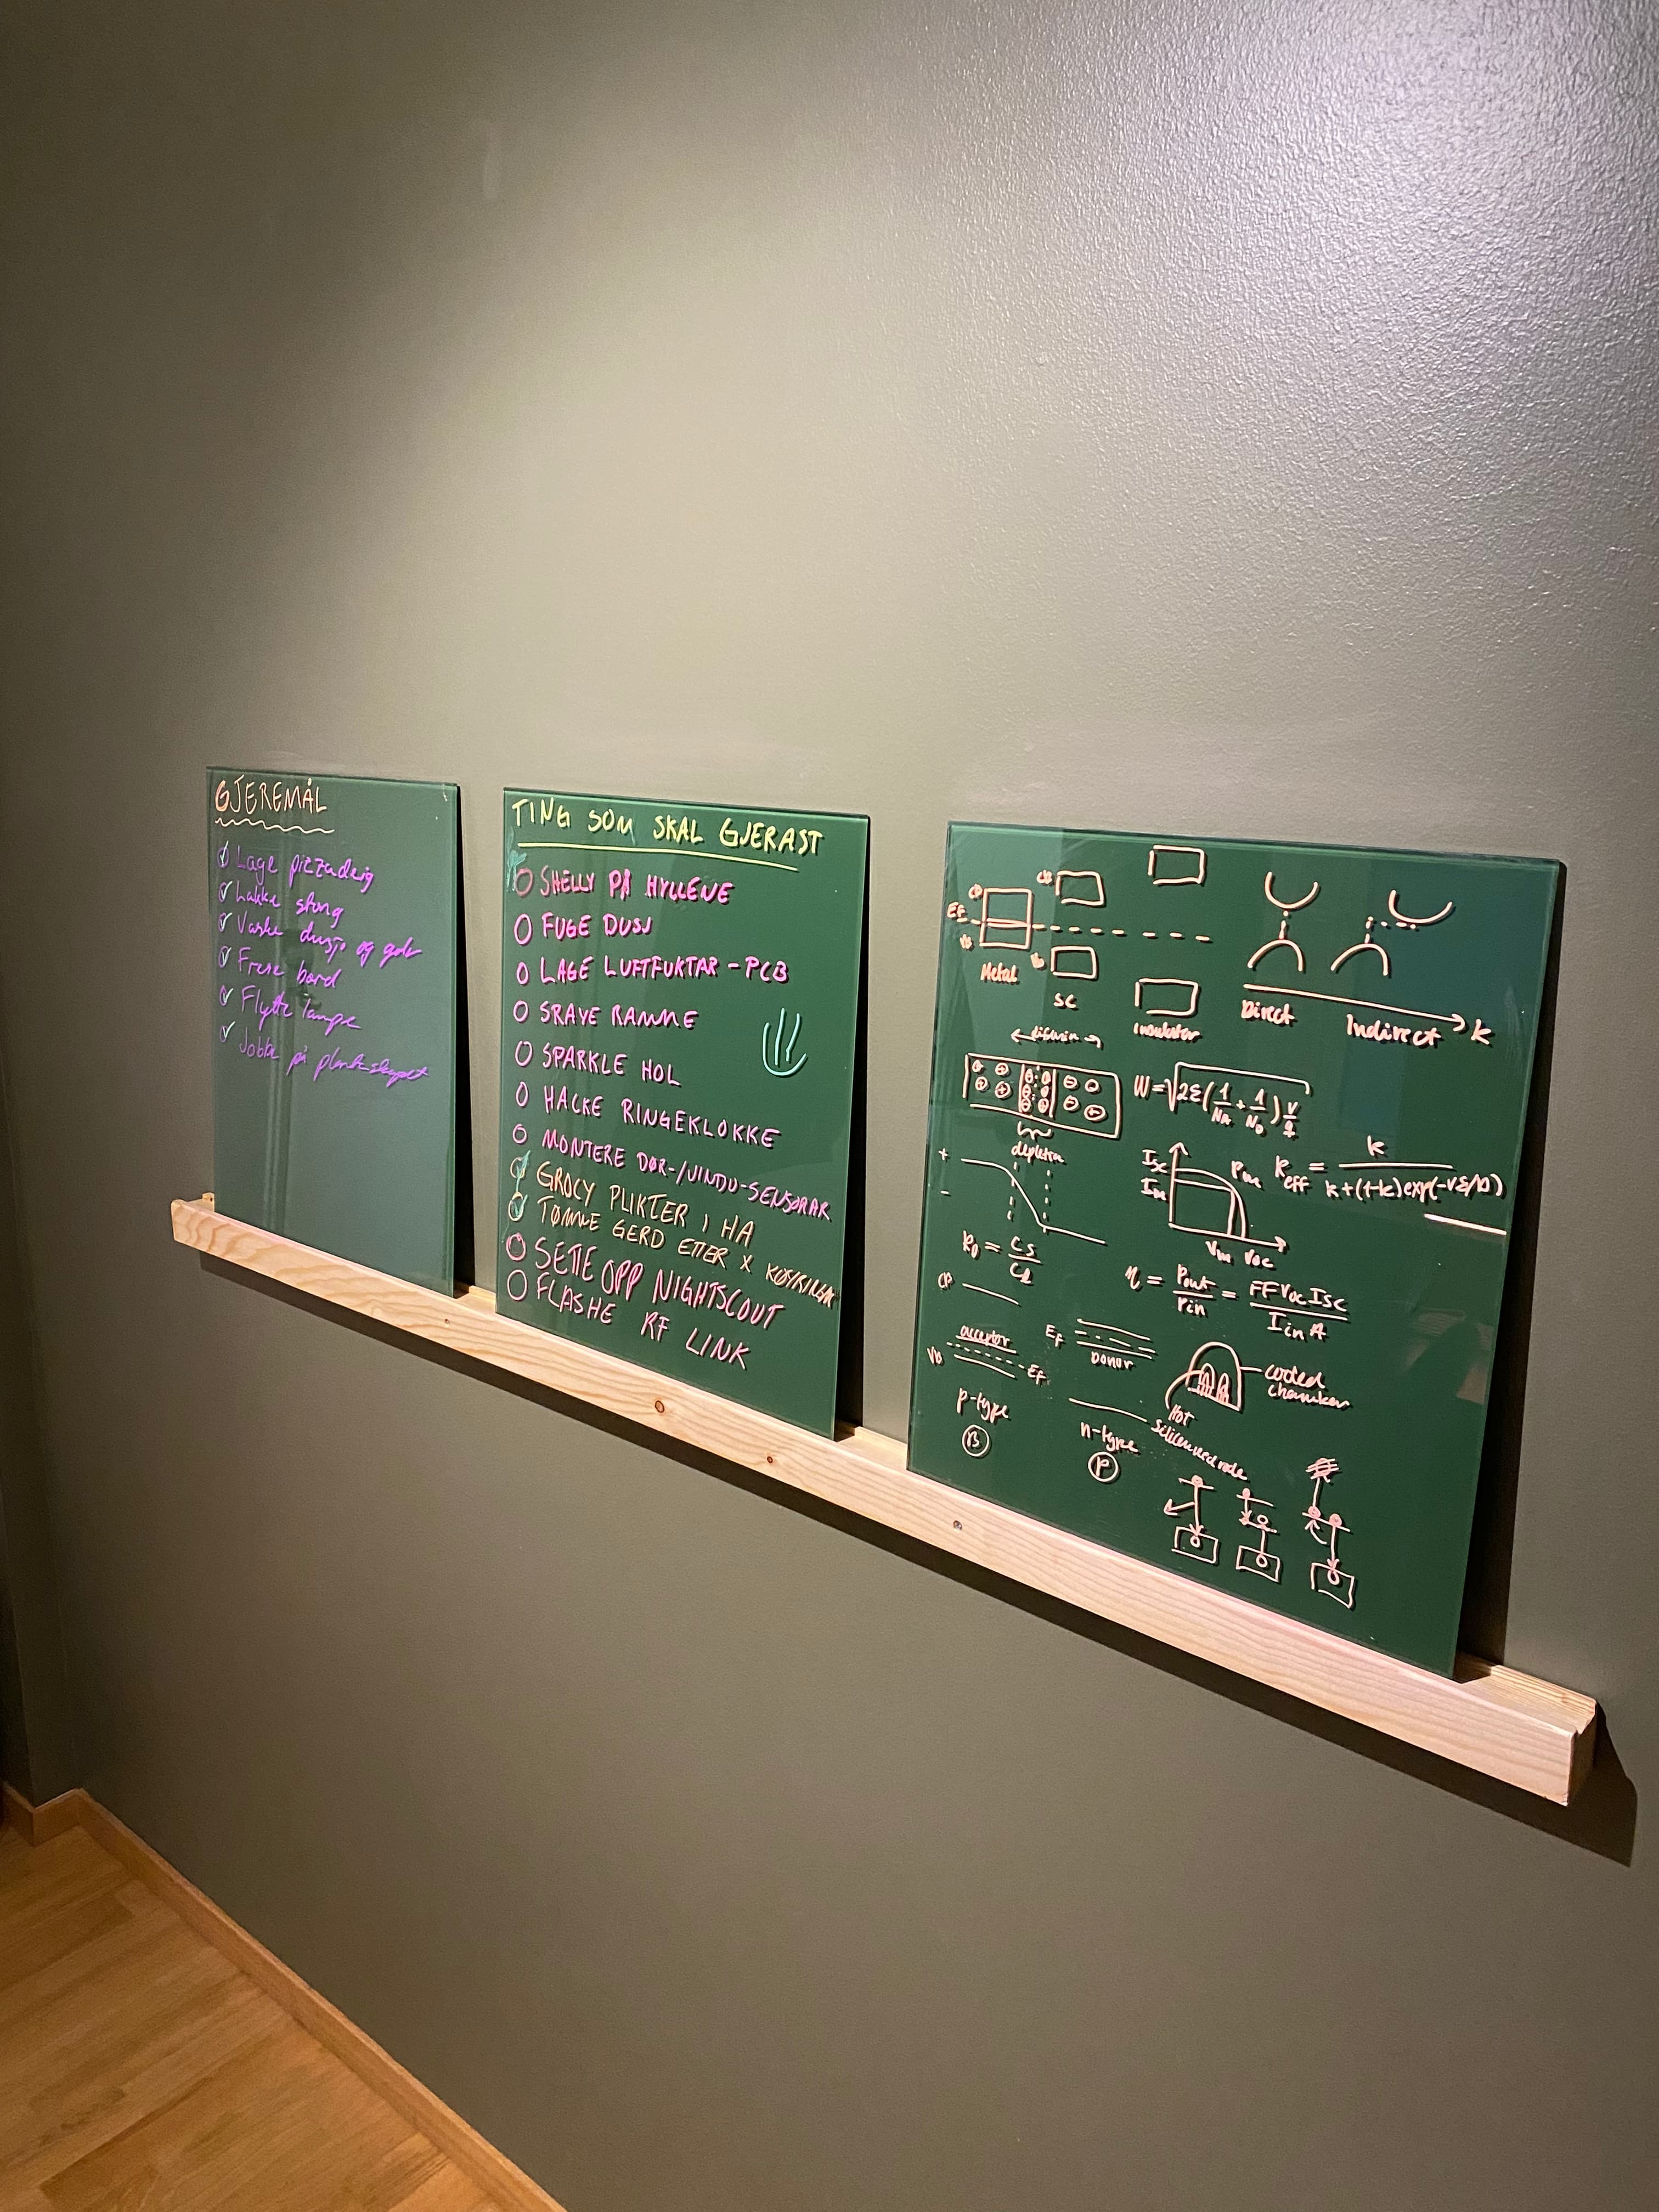 GJEREMÅL
Lage pizzadeig
Lakke stong
Vaske dusjo og golv
Frese bord
Flytte lampe
Jobbe på plankeskapet
TING SOM SKAL GJERAST
SHELLY PÅ HYLLENE
FUGE DUSJ
LAGE LUFTFUKTAR - PCB
SRAYE RAMME
SPARKLE HOL
HACKE RINGEKLOKKE
MONTERE DØR-/VINDU-SENSORAR
GROCY PLIKTER I HA
TØMME GERD ETTER X KØYRINGAR
SETTE OPP NIGHTSCOUT
FLASHE RF LINK
CB
CB
EF
VB
VB
Metal
SC
Insulator
Direct
Indirect
k
diffusion
W = √2ε(1/NA + 1/ND) V/q
depletion
+
-
Isc
Im
Pm
Vm Voc
keff = k / k+(1-k)exp(-vδ/D)
k0 = Cs/Cl
η = Pout/Pin = FF Voc Isc / Iin A
CB
acceptor
VB
EF
p-type
B
EF
Donor
n-type
P
cooled
chamber
Hot
silicon rode